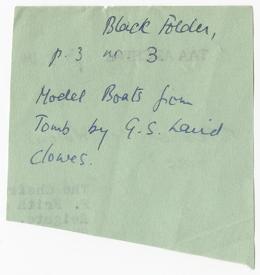 Black Folder,
p.3 no. 3
Model Boats from
Tomb by G.S. Laird
Clowes.